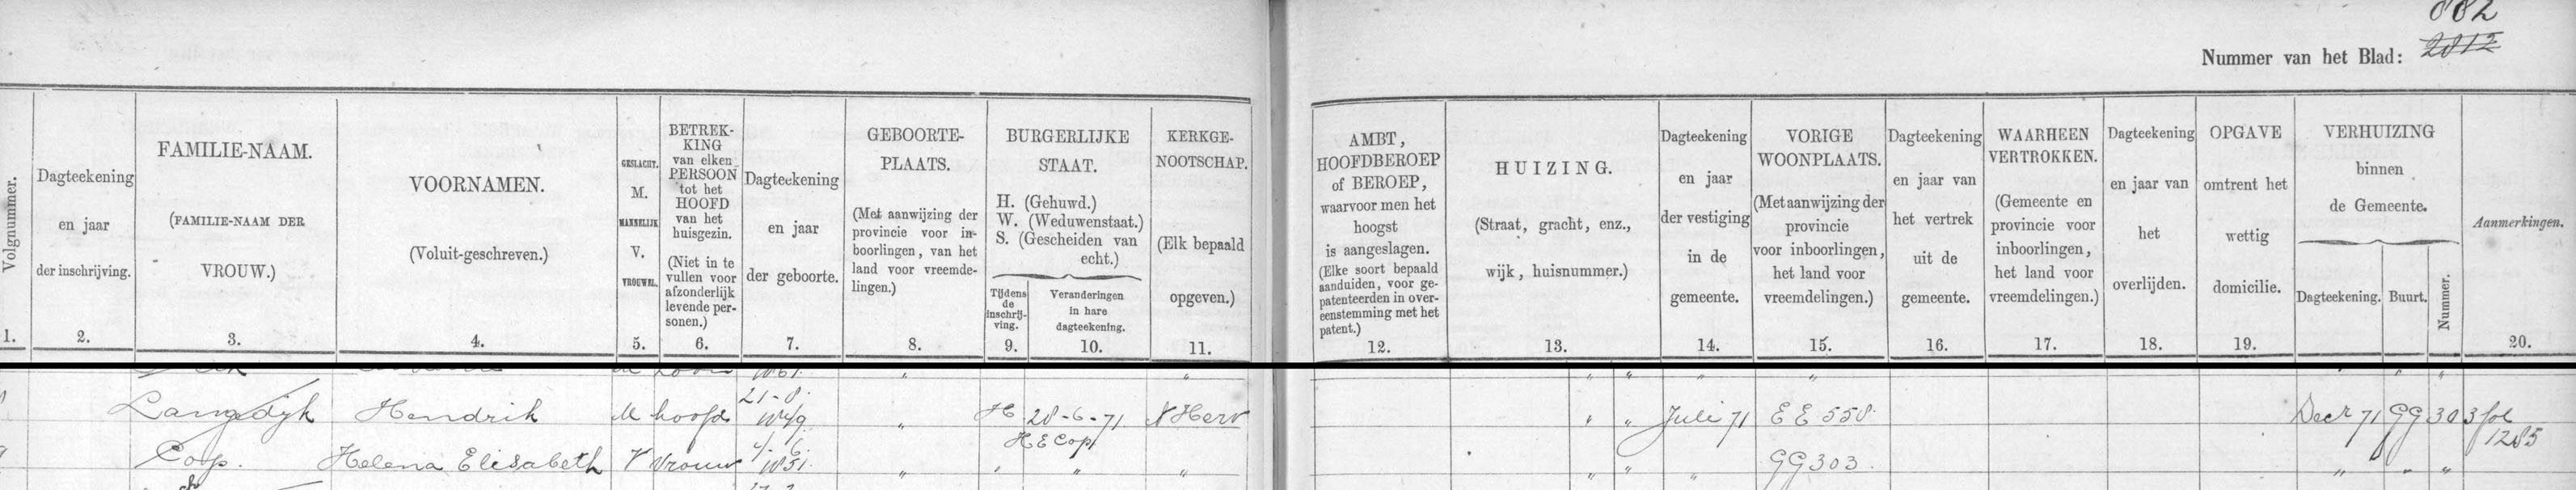 882
Nummer van het Blad: 2812
Volgnummer.
1.
Dagteekening
en jaar
der inschrijving.
2.
FAMILIE-NAAM.
(FAMILIE-NAAM DER
VROUW.)
3.
VOORNAMEN.
(Voluit-geschreven.)
4.
GESLACHT.
M.
MANNELIJK
V.
VROUWEL.
5.
BETREK-
KING
van elken
PERSOON
tot het
HOOFD
van het
huisgezin.
(Niet in te
vullen voor
afzonderlijk
levende per-
sonen.)
6.
Dagteekening
en jaar
der geboorte.
7.
GEBOORTE-
PLAATS.
(Met aanwijzing der
provincie voor in-
boorlingen, van het
land voor vreemde-
lingen.)
8.
BURGERLIJKE
STAAT.
H. (Gehuwd.)
W. (Weduwenstaat.)
S. (Gescheiden van
echt.)
Tijdens
de
inschrij-
ving.
9.
Veranderingen
in hare
dagteekening.
10.
KERKGE-
NOOTSCHAP.
(Elk bepaald
opgeven.)
11.
AMBT,
HOOFDBEROEP
of BEROEP,
waarvoor men het
hoogst
is aangeslagen.
(Elke soort bepaald
aanduiden, voor ge-
patenteerden in over-
eenstemming met het
patent.)
12.
HUIZING.
(Straat, gracht, enz.,
wijk, huisnummer.)
13.
Dagteekening
en jaar
der vestiging
in de
gemeente.
14.
VORIGE
WOONPLAATS.
(Met aanwijzing der
provincie
voor inboorlingen,
het land voor
vreemdelingen.)
15.
Dagteekening
en jaar van
het vertrek
uit de
gemeente.
16.
WAARHEEN
VERTROKKEN.
(Gemeente en
provincie voor
inboorlingen,
het land voor
vreemdelingen.)
17.
Dagteekening
en jaar van
het
overlijden.
18.
OPGAVE
omtrent het
wettig
domicilie.
19.
VERHUIZING
binnen
de Gemeente.
Dagteekening.
Buurt.
Nummer.
Aanmerkingen.
20.
Langedyk Hendrik M hoofd 21-8. 1849 " H 28-6-71 N Herv " " Juli 71 EE 558 Decr 71 GG 303 fol
H E Cop 1285
Cop. Helena Elisabeth V Vrouw 4-6. 1851. " " " " " " " GG 303. " " "